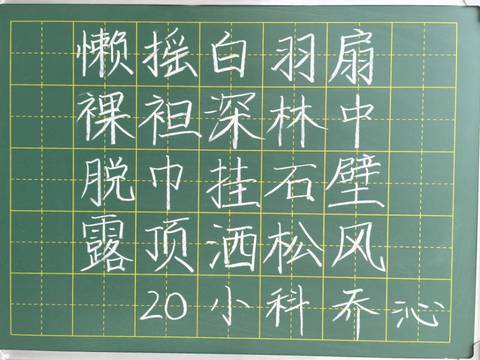 懒摇白羽扇
裸袒深林中
脱巾挂石壁
露顶洒松风
20小科乔沁